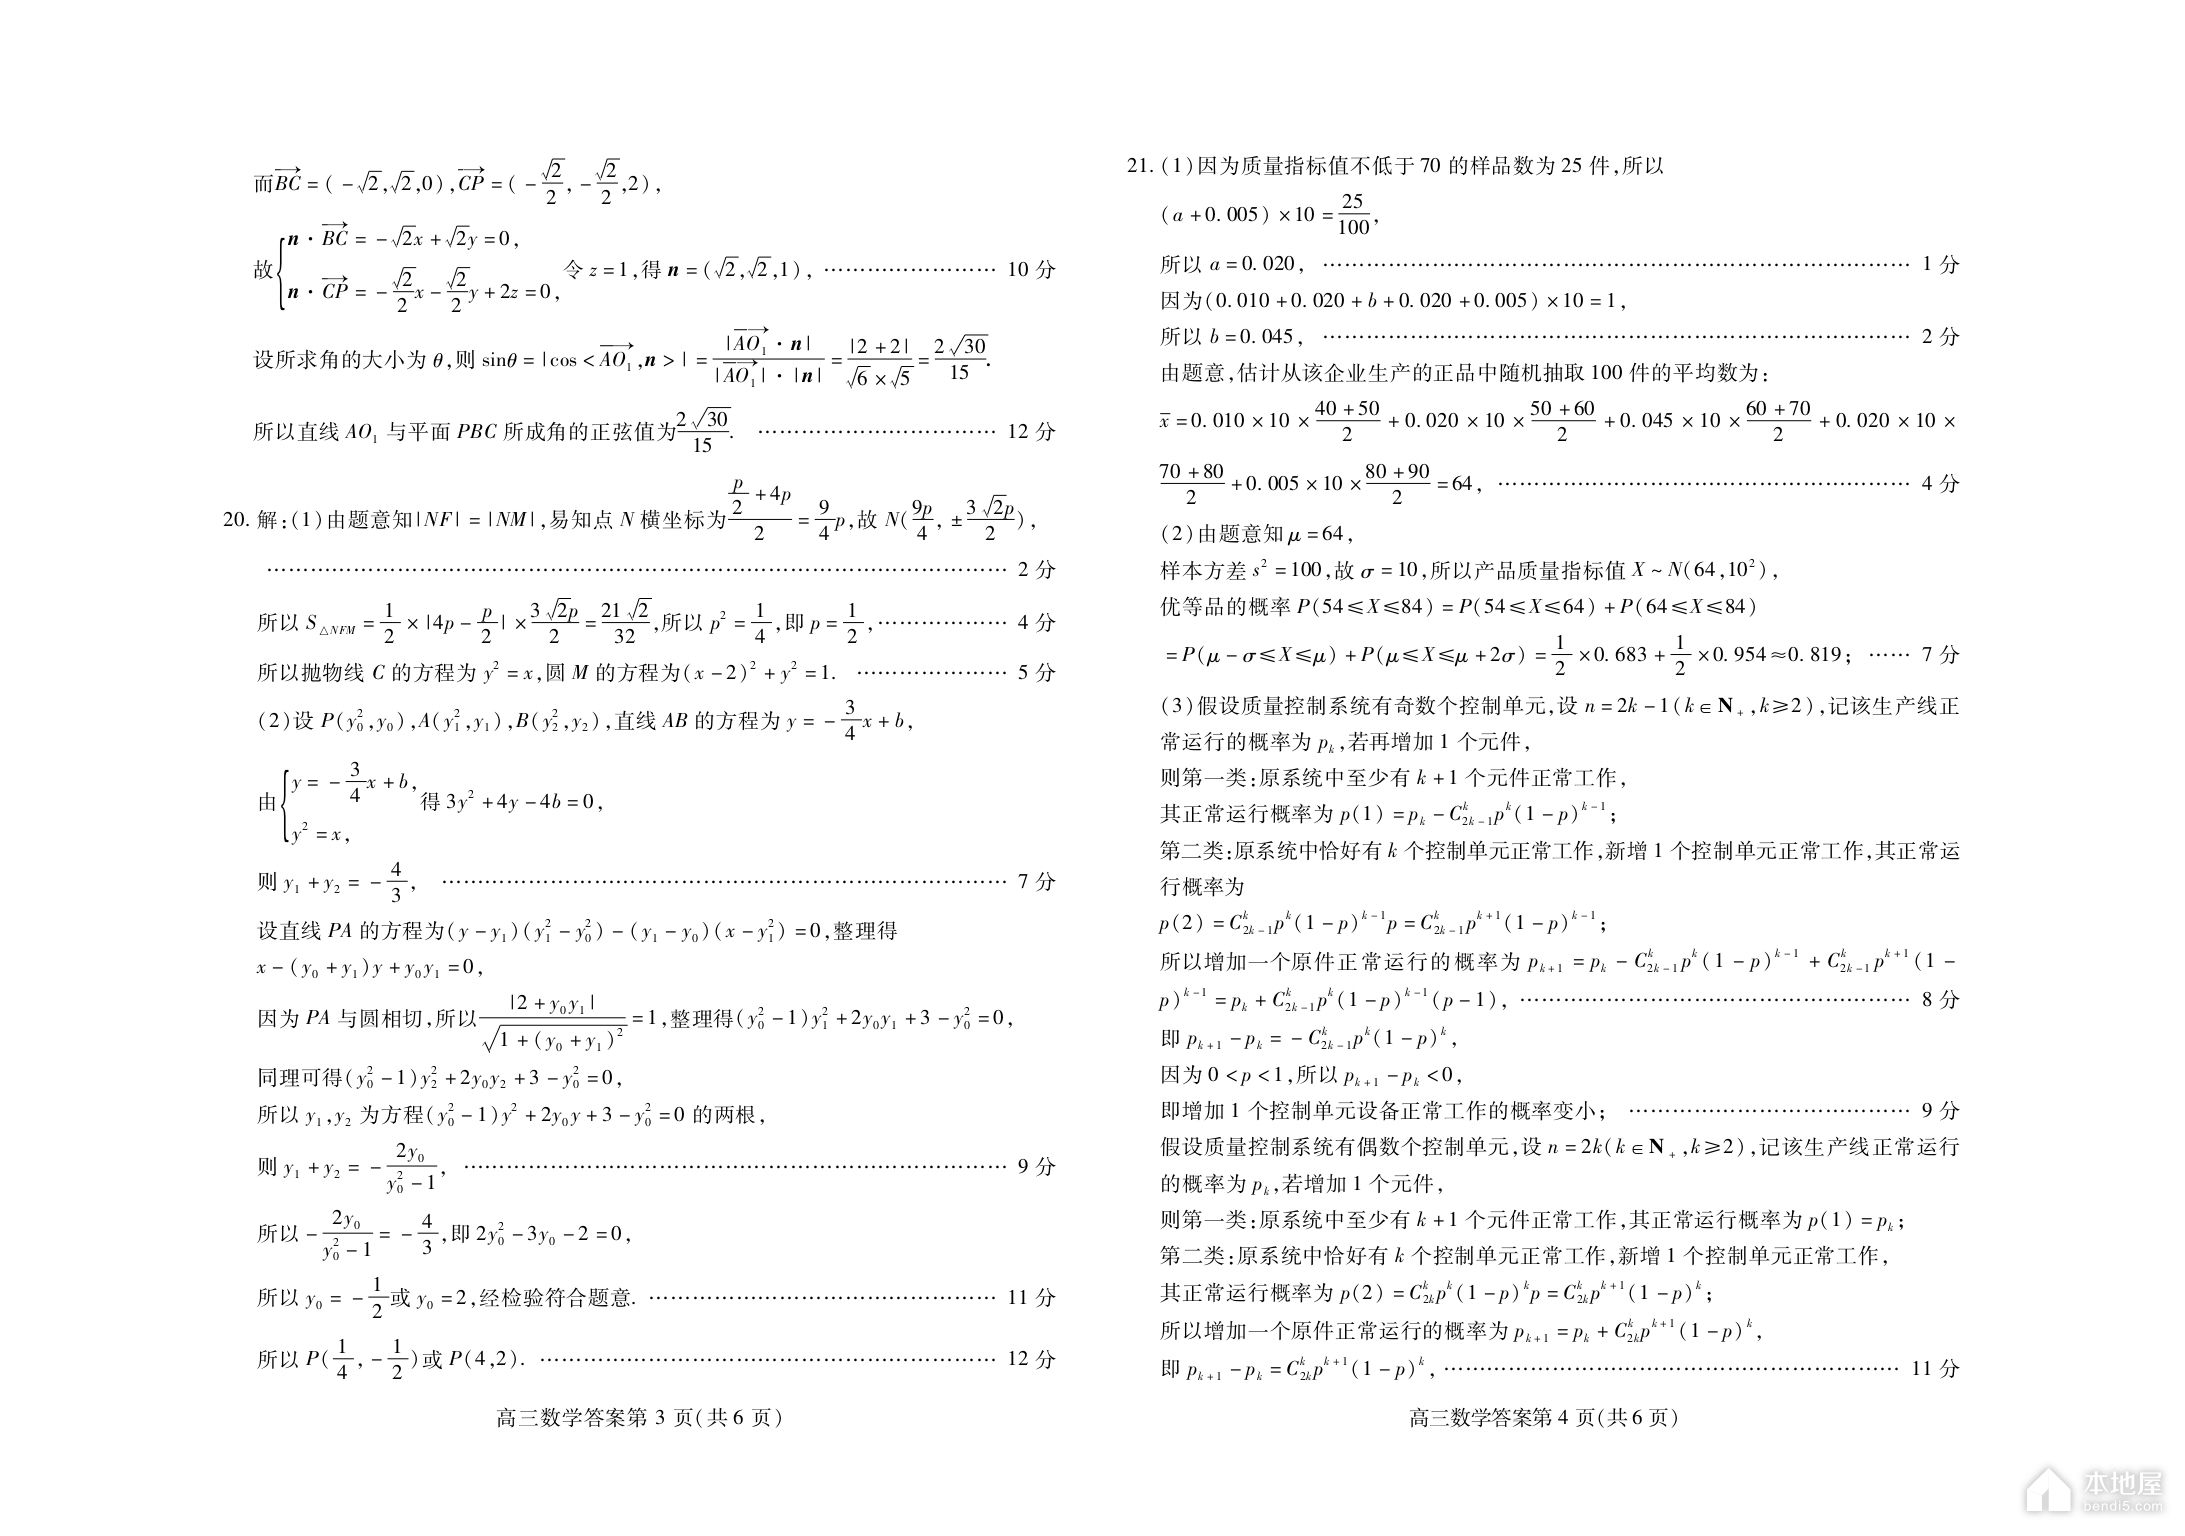 而BC→=(-√2,√2,0),CP→=(-√2/2,-√2/2,2),
故{n·BC→=-√2x+√2y=0,
n·CP→=-√2/2x-√2/2y+2z=0, 令z=1,得n=(√2,√2,1), …………………… 10分
设所求角的大小为θ,则sinθ=|cos<AO₁→,n>|=|AO₁→·n|/(|AO₁→|·|n|)=|2+2|/(√6×√5)=2√30/15.
所以直线AO₁与平面PBC所成角的正弦值为2√30/15. …………………………… 12分
20.解:(1)由题意知|NF|=|NM|,易知点N横坐标为(p/2+4p)/2=9/4p,故N(9p/4,±3√2p/2),
…………………………………………………………………………………… 2分
所以S△NFM=1/2×|4p-p/2|×3√2p/2=21√2/32,所以p²=1/4,即p=1/2,……………… 4分
所以抛物线C的方程为y²=x,圆M的方程为(x-2)²+y²=1. ………………… 5分
(2)设P(y₀²,y₀),A(y₁²,y₁),B(y₂²,y₂),直线AB的方程为y=-3/4x+b,
由{y=-3/4x+b,
y²=x, 得3y²+4y-4b=0,
则y₁+y₂=-4/3, …………………………………………………………………… 7分
设直线PA的方程为(y-y₁)(y₁²-y₀²)-(y₁-y₀)(x-y₁²)=0,整理得
x-(y₀+y₁)y+y₀y₁=0,
因为PA与圆相切,所以|2+y₀y₁|/√(1+(y₀+y₁)²)=1,整理得(y₀²-1)y₁²+2y₀y₁+3-y₀²=0,
同理可得(y₀²-1)y₂²+2y₀y₂+3-y₀²=0,
所以y₁,y₂为方程(y₀²-1)y²+2y₀y+3-y₀²=0的两根,
则y₁+y₂=-2y₀/(y₀²-1), ………………………………………………………………… 9分
所以-2y₀/(y₀²-1)=-4/3,即2y₀²-3y₀-2=0,
所以y₀=-1/2或y₀=2,经检验符合题意. ………………………………………… 11分
所以P(1/4,-1/2)或P(4,2). ……………………………………………………… 12分
高三数学答案第3页(共6页)
21.(1)因为质量指标值不低于70的样品数为25件,所以
(a+0.005)×10=25/100,
所以a=0.020, ……………………………………………………………………… 1分
因为(0.010+0.020+b+0.020+0.005)×10=1,
所以b=0.045, ……………………………………………………………………… 2分
由题意,估计从该企业生产的正品中随机抽取100件的平均数为:
x̄=0.010×10×(40+50)/2+0.020×10×(50+60)/2+0.045×10×(60+70)/2+0.020×10×
(70+80)/2+0.005×10×(80+90)/2=64, ………………………………………………… 4分
(2)由题意知μ=64,
样本方差s²=100,故σ=10,所以产品质量指标值X~N(64,10²),
优等品的概率P(54≤X≤84)=P(54≤X≤64)+P(64≤X≤84)
=P(μ-σ≤X≤μ)+P(μ≤X≤μ+2σ)=1/2×0.683+1/2×0.954≈0.819; …… 7分
(3)假设质量控制系统有奇数个控制单元,设n=2k-1(k∈N₊,k≥2),记该生产线正
常运行的概率为pₖ,若再增加1个元件,
则第一类:原系统中至少有k+1个元件正常工作,
其正常运行概率为p(1)=pₖ-C_{2k-1}^k p^k(1-p)^{k-1};
第二类:原系统中恰好有k个控制单元正常工作,新增1个控制单元正常工作,其正常运
行概率为
p(2)=C_{2k-1}^k p^k(1-p)^{k-1}p=C_{2k-1}^k p^{k+1}(1-p)^{k-1};
所以增加一个原件正常运行的概率为p_{k+1}=pₖ-C_{2k-1}^k p^k(1-p)^{k-1}+C_{2k-1}^k p^{k+1}(1-
p)^{k-1}=pₖ+C_{2k-1}^k p^k(1-p)^{k-1}(p-1), ……………………………………………… 8分
即p_{k+1}-pₖ=-C_{2k-1}^k p^k(1-p)^k,
因为0<p<1,所以p_{k+1}-pₖ<0,
即增加1个控制单元设备正常工作的概率变小; ………………………………… 9分
假设质量控制系统有偶数个控制单元,设n=2k(k∈N₊,k≥2),记该生产线正常运行
的概率为pₖ,若增加1个元件,
则第一类:原系统中至少有k+1个元件正常工作,其正常运行概率为p(1)=pₖ;
第二类:原系统中恰好有k个控制单元正常工作,新增1个控制单元正常工作,
其正常运行概率为p(2)=C_{2k}^k p^k(1-p)^k p=C_{2k}^k p^{k+1}(1-p)^k;
所以增加一个原件正常运行的概率为p_{k+1}=pₖ+C_{2k}^k p^{k+1}(1-p)^k,
即p_{k+1}-pₖ=C_{2k}^k p^{k+1}(1-p)^k, ……………………………………………………… 11分
高三数学答案第4页(共6页)
本地屋
bendi5.com